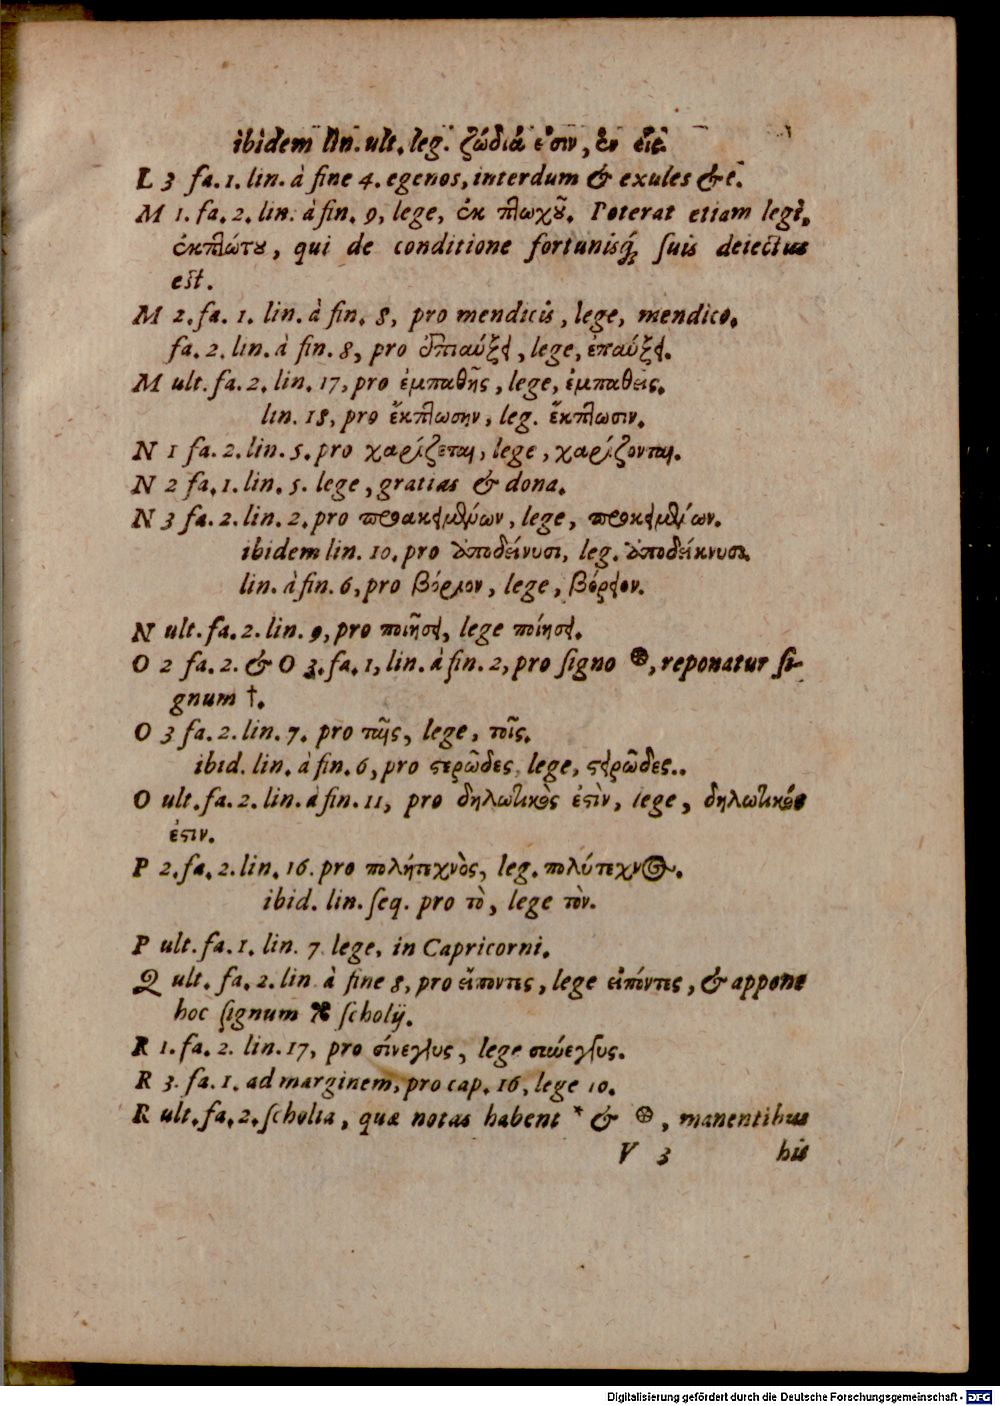 ibidem lin. ult. leg. ζώδιά ἐσιν, ἐν
L 3 fa. 1. lin. à fine 4. egenos, interdum & exules & ē.
M 1. fa. 2. lin. à fin. 9, lege, ἐκ πλωχοῦ. Poterat etiam legi,
ἐκπλώτου, qui de conditione fortunisq́; ſuis deiectus
eſt.
M 2. fa. 1. lin. à fin. 8, pro mendicis, lege, mendico.
fa. 2. lin. à fin. 8, pro ὀπιαύξει, lege, ἐπαύξει.
M ult. fa. 2. lin. 17, pro ἐμπαθῆς, lege, ἐμπαθεῖς.
lin. 18, pro ἔκπλωσην, leg. ἔκπλωσιν.
N 1 fa. 2. lin. 5. pro χαρίζεται, lege, χαρίζονται.
N 2 fa. 1. lin. 5. lege, gratias & dona.
N 3 fa. 2. lin. 2. pro προακειμθμων, lege, προκειμθμων.
ibidem lin. 10. pro ἀποδείνυσι, leg. ἀποδείκνυσι.
lin. à fin. 6, pro βόρλιον, lege, βόρειον.
N ult. fa. 2. lin. 9, pro ποιῆσει, lege ποίησει.
O 2 fa. 2. & O 3. fa. 1, lin. à fin. 2, pro ſigno ⊛, reponatur ſi-
gnum †.
O 3 fa. 2. lin. 7. pro ταῆς, lege, τοῖς.
ibid. lin. à fin. 6, pro ςερῶδες, lege, ςειρῶδες..
O ult. fa. 2. lin. à fin. 11, pro δηλωτικὸς ἐςὶν, lege, δηλωτικός
ἐςιν.
P 2. fa. 2. lin. 16. pro πολήτεχνὸς, leg. πολύτεχνος.
ibid. lin. ſeq. pro τὸ, lege τὸν.
P ult. fa. 1. lin. 7. lege, in Capricorni.
Q ult. fa. 2. lin. à fine 8, pro εἴποντες, lege εἰπόντες, & appone
hoc ſignum ⌘ ſcholij.
R 1. fa. 2. lin. 17, pro σίνεγΓυς, lege σινώεγΓυς.
R 3. fa. 1. ad marginem, pro cap. 16, lege 10.
R ult. fa. 2. ſcholia, quæ notas habent * & ⊛, manentibus
V 3 his
Digitalisierung gefördert durch die Deutsche Forschungsgemeinschaft - DFG